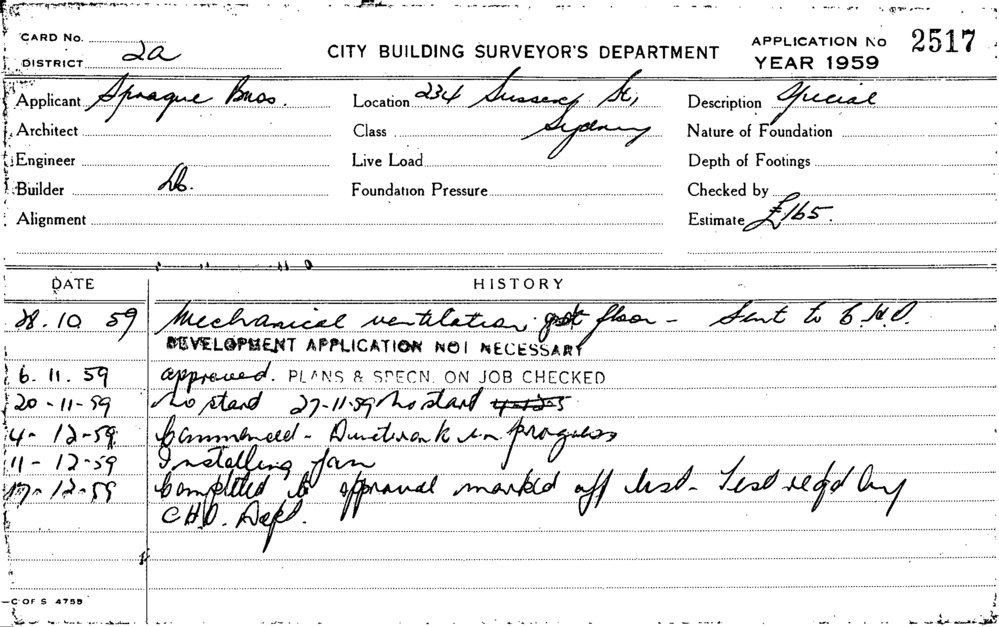 CARD No.
DISTRICT 2a
CITY BUILDING SURVEYOR'S DEPARTMENT
APPLICATION No 2517
YEAR 1959
Applicant Sprague Bros. Location 234 Sussex St, Description Special
Architect Class Sydney Nature of Foundation
Engineer Live Load Depth of Footings
Builder Do. Foundation Pressure Checked by
Alignment Estimate £165.
DATE HISTORY
28.10 59 Mechanical ventilation floor - Sent to C.H.O.
DEVELOPMENT APPLICATION NOT NECESSARY
6. 11. 59 approved. PLANS & SPECN. ON JOB CHECKED
20-11-59 No start 27-11-59 No start 4-12-5
4-12-59 Commenced - Ductwork in progress
11-12-59 Installing fan
17-12-59 Completed to approval marked off list - Test req'd by
C.H.O. Dept.
C OF S 4755